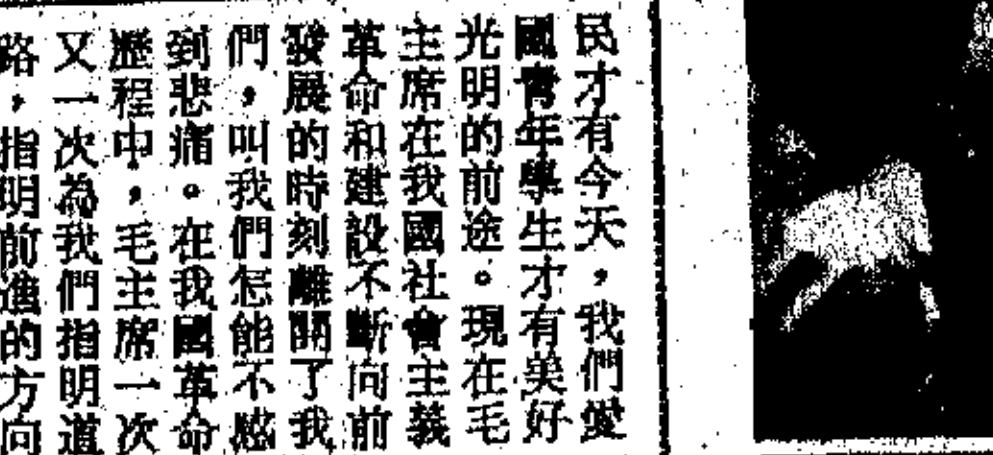 民才有今天，我們愛
國青年學生才有美好
光明的前途。現在毛
主席在我國社會主義
革命和建設不斷向前
發展的時刻離開了我
們，叫我們怎能不感
到悲痛。在我國革命
歷程中，毛主席一次
又一次為我們指明道
路，指明前進的方向